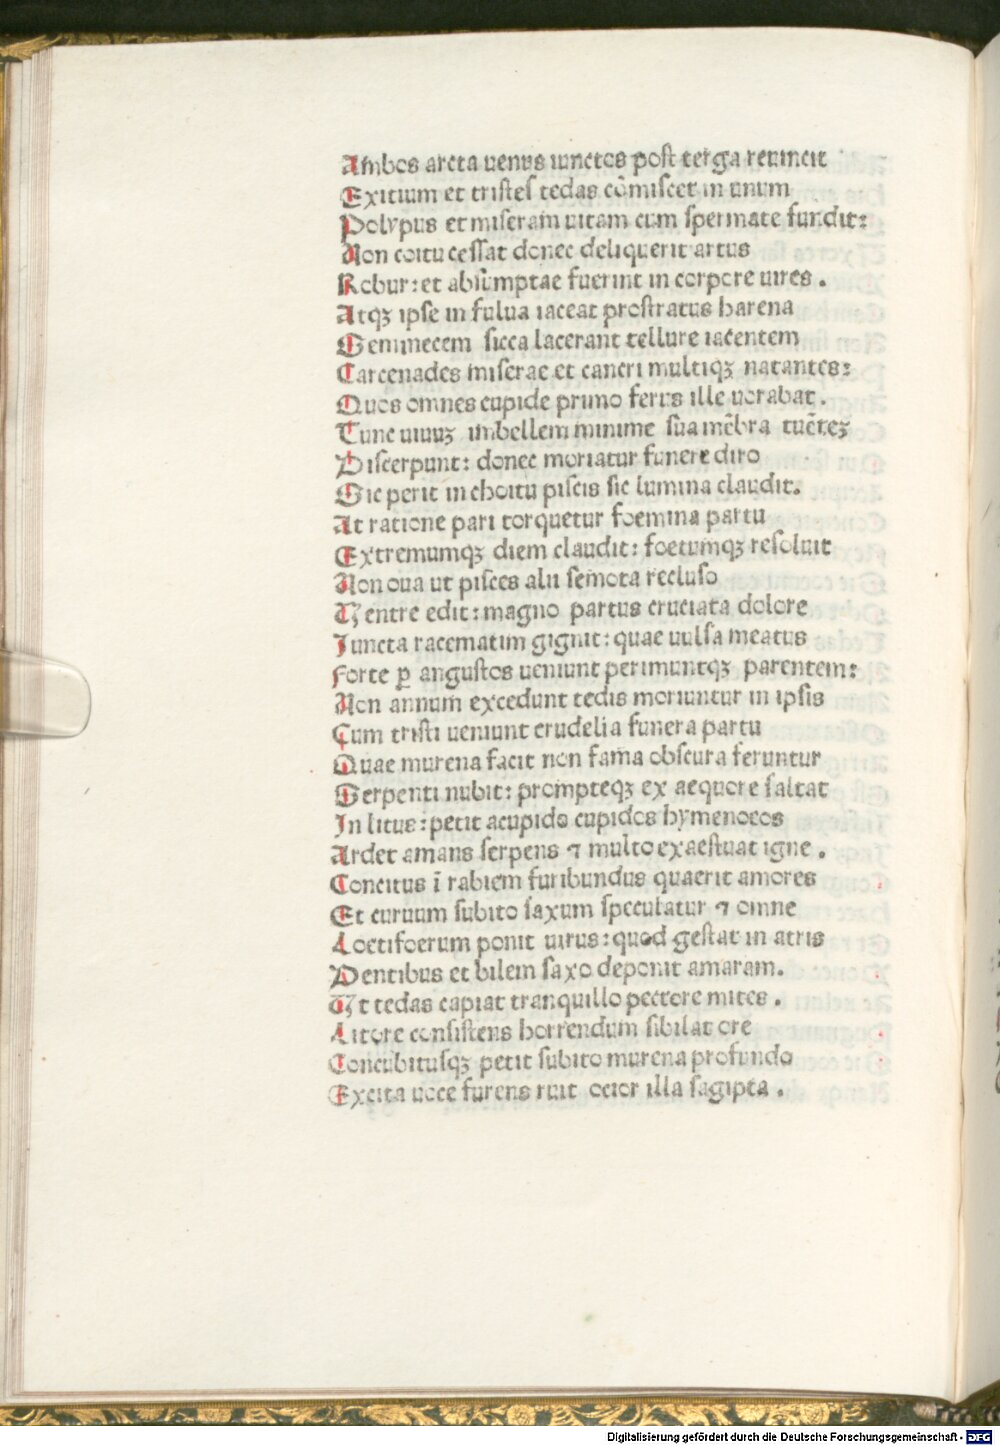 Ambos arcta uenus iunctos post terga reuincit
Exitium et tristes tedas cōmiscet in unum
Polypus et miseram uitam cum spermate fundit:
Non coitu cessat donec deliquerit artus
Robur: et absūmptae fuerint in corpore uires.
Atqꝫ ipse in fulua iaceat prostratus harena
Seminecem sicca lacerant tellure iacentem
Carcenades miserae et cancri multiqꝫ natantes:
Quos omnes cupide primo ferus ille uorabat.
Tunc uiuuꝫ imbellem minime sua mēbra tuēteꝫ
Discerpunt: donec moriatur funere diro
Sic perit in choitu piscis sic lumina claudit.
At ratione pari torquetur foemina partu
Extremumqꝫ diem claudit: foetumqꝫ resoluit
Non oua ut pisces alii semota recluso
Uentre edit: magno partus cruciata dolore
Iuncta racematim gignit: quae uulsa meatus
forte ꝑ angustos ueniunt perimuntqꝫ parentem:
Non annum excedunt tedis moriuntur in ipsis
Cum tristi ueniunt crudelia funera partu
Quae murena facit non fama obscura feruntur
Serpenti nubit: prompteqꝫ ex aequore saltat
In litus: petit acupido cupidos hymenoeos
Ardet amans serpens ⁊ multo exaestuat igne.
Concitus ī rabiem furibundus quaerit amores
Et curuum subito saxum speculatur ⁊ omne
Loetifoerum ponit uirus: quod gestat in atris
Dentibus et bilem saxo deponit amaram.
Ut tedas capiat tranquillo pectore mites.
Litore consistens horrendum sibilat ore
Concubitusqꝫ petit subito murena profundo
Excita uoce furens ruit ocior illa sagipta.
Digitalisierung gefördert durch die Deutsche Forschungsgemeinschaft - DFG